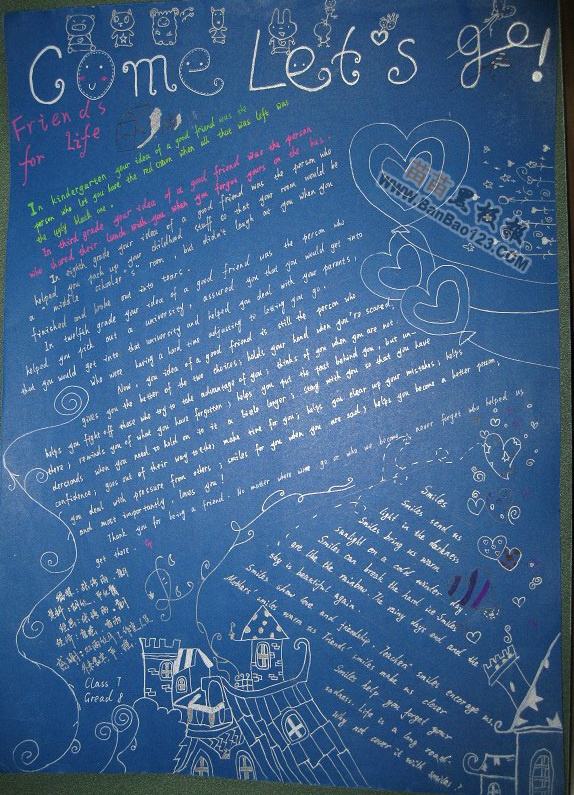 Come Let's go!
Friends
for life
In kindergarten your idea of a good friend was the
person who let you have the red crayon when all that was left was
the ugly black one.
In third grade your idea of a good friend was the person
who shared their lunch with you when you forgot yours on the bus.
In eighth grade your idea of a good friend was the person who
helped you pack up your childhood stuff so that your room would be
a "middle schooler's" room, but didn't laugh at you when you
finished and broke out into tears.
In twelfth grade your idea of a good friend was the person who
helped you pick out a university, assured you that you would get into
that you would get into that university and helped you deal with your parents,
who were having a hard time adjusting to letting you go.
Now, you idea of a good friend is still the person who
gives you the better of the two choices; holds your hand when you're scared;
helps you fight off those who try to take advantage of you; thinks of you when you are not
there; reminds you of what you have forgotten; helps you put the past behind you, but un-
derstands when you need to hold on to it a little longer; stay with you so that you have
confidence; goes out of their way to make time for you; helps you clear up your mistakes; helps
you deal with pressure from others; smiles for you when you are sad; helps you become a better person;
and most importantly, loves you!
Thank you for being a friend. No matter where we go or who we become, never forget who helped us
get there.
Class 7
Gread 8
Smiles
Smiles send us
light in the darkness
Smiles bring us warm
sunlight on a cold winter day
Smiles can break the hard ice Smiles
are like the rainbow. The rainy days end and the
sky is beautiful again.
Smiles show love and friendship. Teachers' smiles encourage us
Mothers' smiles warm us Friends' smiles make us closer
Smiles help you forget your
sadness. Life is a long road.
Why not cover it with smiles?
苗苗黑板报
www.BanBao123.com